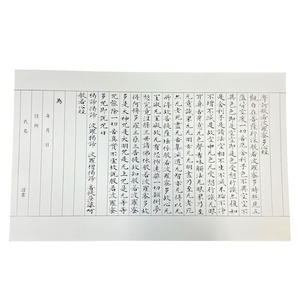 摩訶般若波羅蜜多心経
観自在菩薩行深般若波羅蜜多時照見五
蘊皆空度一切苦厄舎利子色不異空空不
異色色即是空空即是色受想行識亦復如
是舎利子是諸法空相不生不滅不垢不浄
不増不減是故空中无色无受想行識无眼
耳鼻舌身意无色声香味触法无眼界乃至
无意識界无无明亦无无明尽乃至无老死
亦无老死尽无苦集滅道无智亦无得以无
所得故菩提薩埵依般若波羅蜜多故心
无罣礙无罣礙故无有恐怖遠離一切顛倒夢
想究竟涅槃三世諸仏依般若波羅蜜多故
得阿耨多羅三藐三菩提故知般若波羅蜜
多是大神呪是大明呪是无上呪是无等等
呪能除一切苦真実不虚故説般若波羅蜜
多呪即説呪曰
羯諦羯諦 波羅羯諦 波羅僧羯諦 菩提薩婆訶
般若心経
為
年 月 日
住所
氏名 謹書